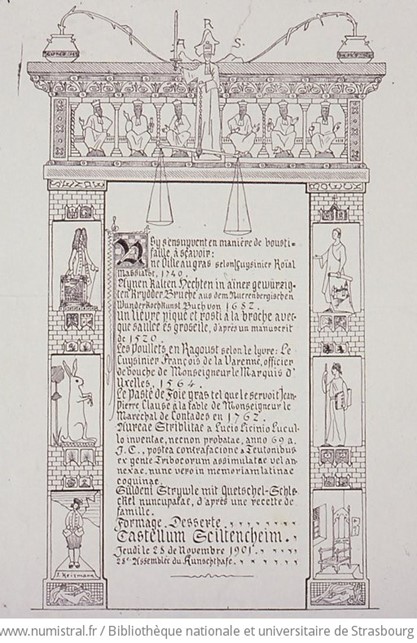 S.
Icy sensuyvent en maniere de bousti-
faille, à sçavoir:
une Bille au gras selon Cuysinier Roïal
Massialot, 1740.
Aynen kalten Hechten in ainer gewürzig-
ten Krydder Brüche aus dem Nuerenbergischen
Wunderkochkunst Buch von 1682.
un lievre piqué et rosti à la broche avec-
que saulce es groselle, d'après un manuscrit
de 1520.
Les Poullets en Ragoust selon le lyvre: Le
Cuysinier François de la Varenne, officier
de bouche de Monseigneur le Marquis d'
Uxelles. 1564.
Le Pasté de Foie gras tel que le servoit Jean-
Pierre Clause à la table de Monseigneur le
Marechal de Contades en 1762.
Aureae Striblitae a Lucio Licinio Lucul-
lo inventae, necnon probatae, anno 69 a.
J.C., postea contrafacione a Teutonibus
ex gente Tribocorum assimulatae vel an-
nexae, nunc vero in memoriam latinae
coquinae.
Güldeni Strywle mit Quetschel-Schle-
ckel nuncupatae, d'après une recette de
famille.
Formage. Desserte.
Tastellum Sciltencheim.
Jeudi le 28 de Novembre 1901.
28e Assemblée du Kunschthafe.
J. Reizmann
www.numistral.fr / Bibliothèque nationale et universitaire de Strasbourg